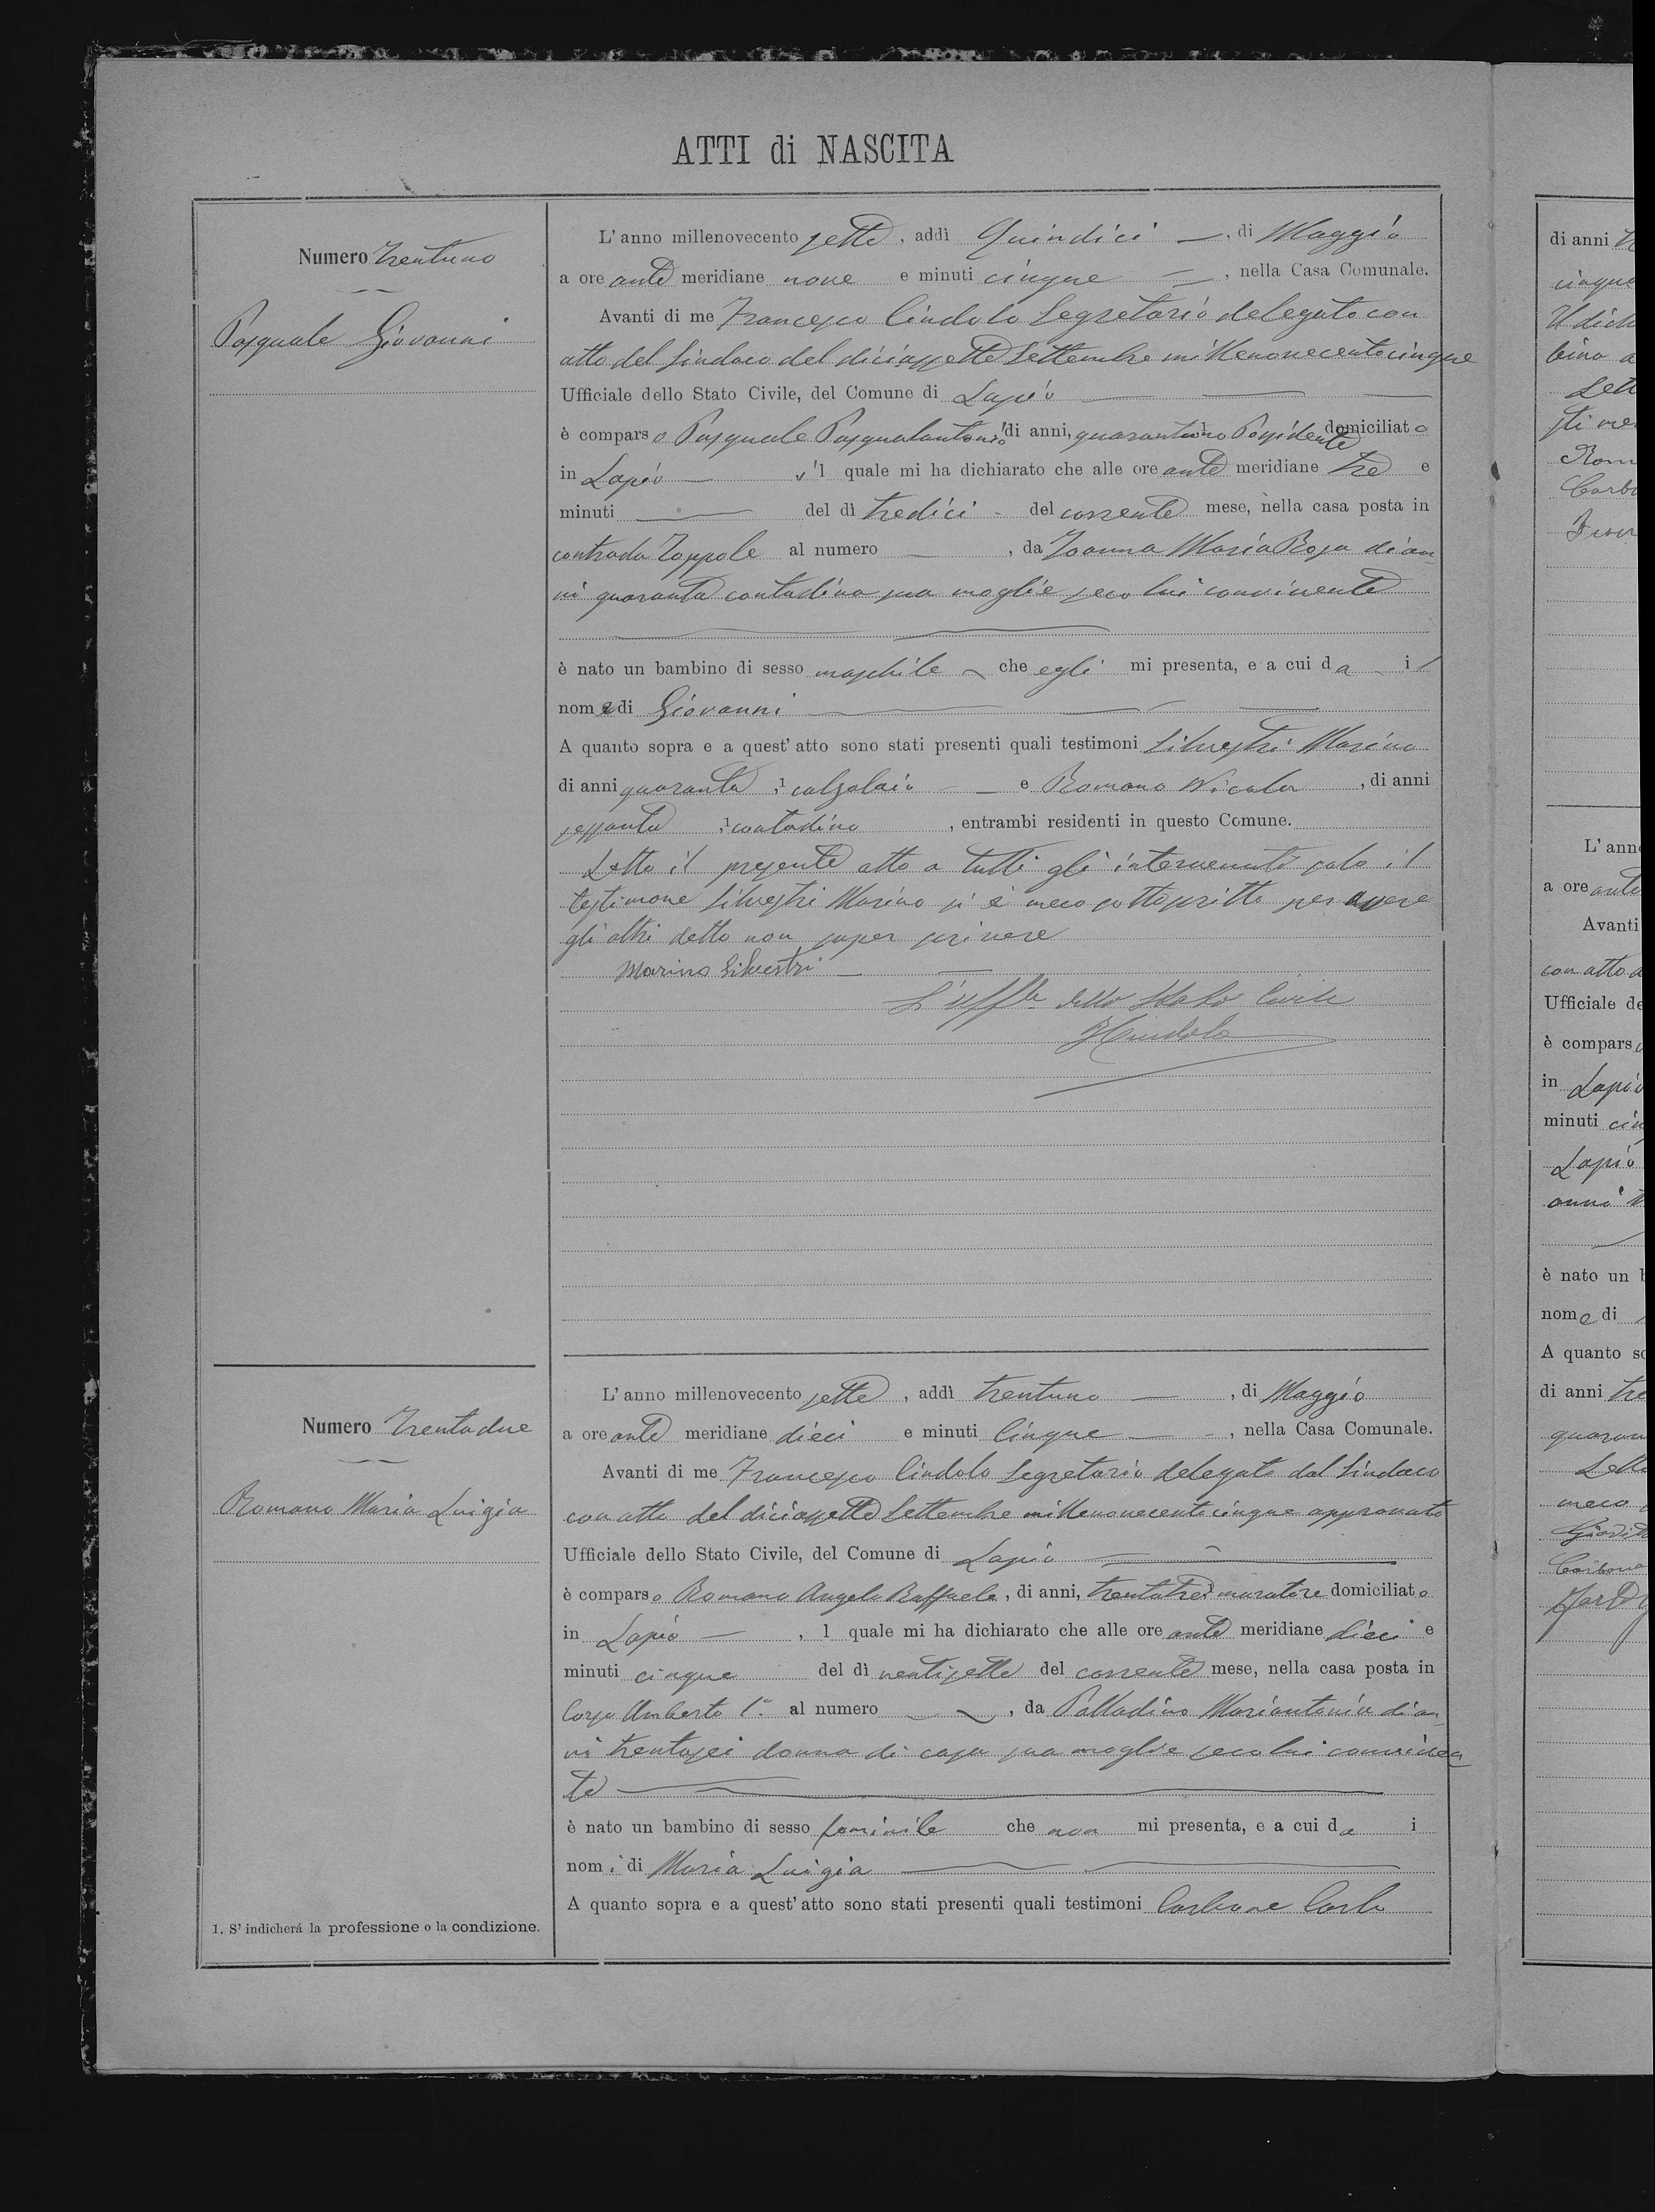 ATTI di NASCITA
Numero Trentuno
Pasquale Giovanni
L'anno millenovecento sette, addì Quindici —, di Maggio
a ore ante meridiane nove e minuti cinque —, nella Casa Comunale.
Avanti di me Francesco Cindolo Segretario delegato con
atto del Sindaco del diciassette Settembre millenovecentocinque
Ufficiale dello Stato Civile, del Comune di Lapio —
è comparso Pasquale Pasqualantonio, di anni, quarantuno Possidente domiciliato
in Lapio —, il quale mi ha dichiarato che alle ore ante meridiane tre e
minuti — del dì tredici - del corrente mese, nella casa posta in
contrada Zoppole al numero —, da Ioanna Maria Rosa di an-
ni quaranta contadina sua moglie seco lui convivente
è nato un bambino di sesso maschile ~ che egli mi presenta, e a cui da il
nome di Giovanni —
A quanto sopra e a quest'atto sono stati presenti quali testimoni Silvestri Marino
di anni quaranta, calzolaio — e Romano Nicola, di anni
sessanta, contadino, entrambi residenti in questo Comune.
Letto il presente atto a tutti gli intervenuti solo il
testimone Silvestri Marino si è meco sottoscritto per avere
gli altri detto non saper scrivere
Marino Silvestri —
L'Uff.le dello Stato Civile
F Cindolo
Numero Trentadue
Romano Maria Luigia
L'anno millenovecento sette, addì trentuno —, di Maggio
a ore ante meridiane dieci e minuti Cinque —, nella Casa Comunale.
Avanti di me Francesco Cindolo Segretario delegato dal Sindaco
con atto del diciassette Settembre millenovecentocinque approvato
Ufficiale dello Stato Civile, del Comune di Lapio —
è comparso Romano Angelo Raffaele, di anni, trentatre muratore domiciliato
in Lapio —, l quale mi ha dichiarato che alle ore ante meridiane dieci e
minuti cinque del dì ventisette del corrente mese, nella casa posta in
Corso Umberto 1.° al numero —, da Palladino Mariantonia di an-
ni trentasei donna di casa sua moglie seco lui conviven
te —
è nato un bambino di sesso feminile che non mi presenta, e a cui da i
nomi di Maria Luigia —
A quanto sopra e a quest'atto sono stati presenti quali testimoni Carbone Carlo
1. S'indicherá la professione o la condizione.
di anni
cinque
Sett
L'ann
a ore ante
Avanti
con atto
Ufficiale de
è compars
in Lapio
minuti
Lapio
anni
è nato un
nome di
A quanto so
di anni tre
meco
Carbone